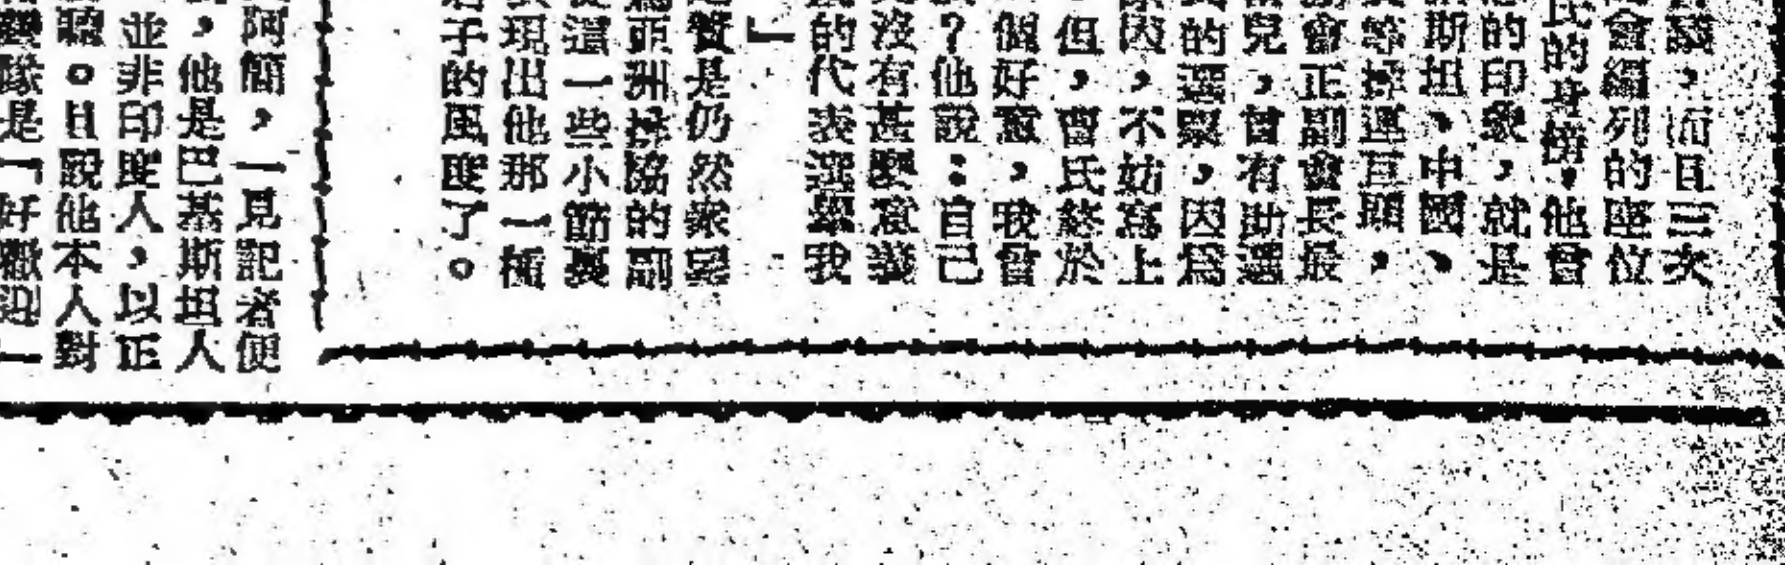 議，而且三次
會編列的座位
氏的身傍，他曾
的印象，就是
斯坦、中國、
等掌運巨頭，
會正副會長最
兒，曾有助選
的選票，因爲
因，不妨寫上
但，曹氏終於
個好意，我曾
？他說：自己
沒有甚麼意義
的代表選舉我
』
贊是仍然衆望
亞洲羽協的副
這一些小節裏
現出他那一種
子的風度了。
阿簡，一見記者便
，他是巴基斯坦人
並非印度人，以正
聽。且說他本人對
隊是「好